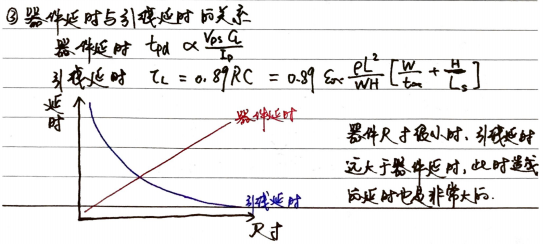 ③ 器件延时与引线延时的关系
器件延时 tpd ∝ VDS CL / ID
引线延时 τL = 0.89RC = 0.89 εox ρL² / WH [W/tox + H/Ls]
延时
器件延时
引线延时
尺寸
器件尺寸很小时、引线延时
远大于器件延时,此时连线
的延时也是非常大的.